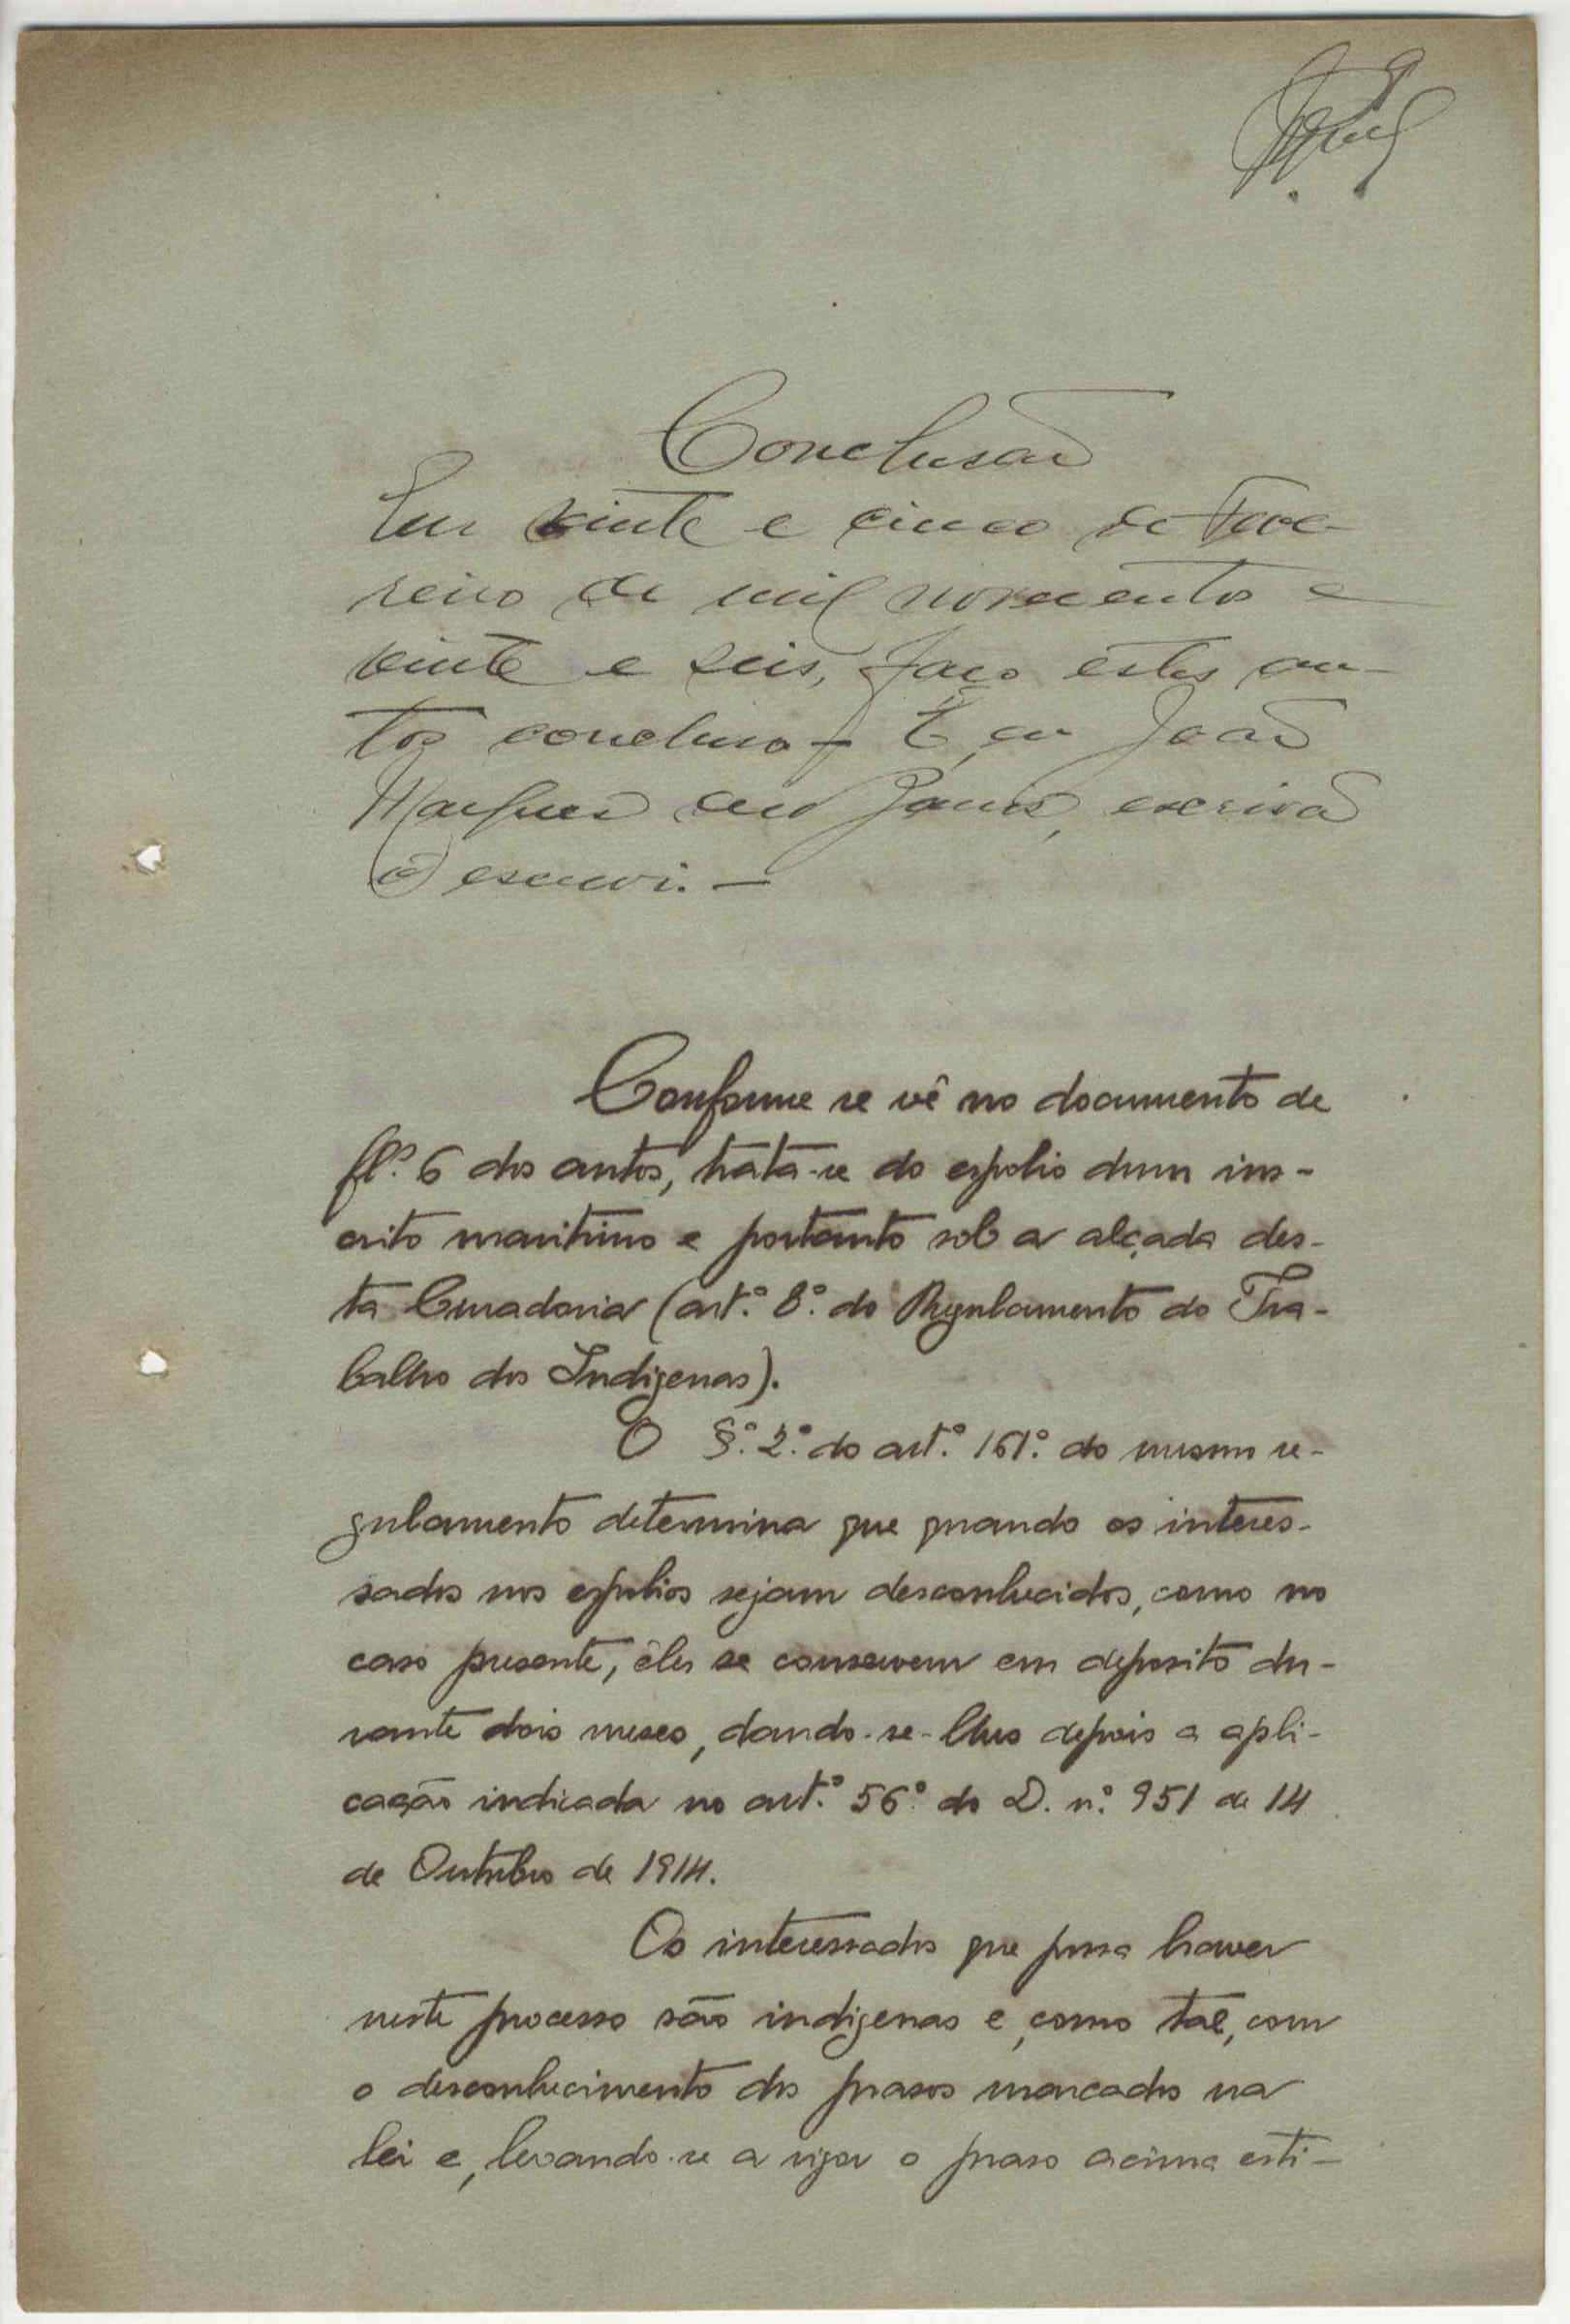 Conclusão
Em vinte e cinco de Feve-
reiro de mil novecentos e
vinte e seis, faço estes au-
tos conclusos. E, eu João
Marques escrivão
o escrevi. —
Conforme se vê no documento de
fl.ª 6 dos autos, trata-se do espolio dum ins-
crito maritimo e portanto sob a alçada des-
ta Curadoria (art.º 8.º do Regulamento do Tra-
balho dos Indigenas).
O §.º 2.º do art.º 161.º do mesmo re-
gulamento determina que quando os interes-
sados nos espolios sejam desconhecidos, como no
caso presente, êles se conservem em deposito du-
rante dois meses, dando-se-lhes depois a apli-
cação indicada no art.º 56.º do D. n.º 951 de 14
de Outubro de 1914.
Os interessados que possa haver
neste processo são indigenas e, como tal, com
o desconhecimento dos prasos marcados na
lei e, levando-se a rigor o praso acima esti-